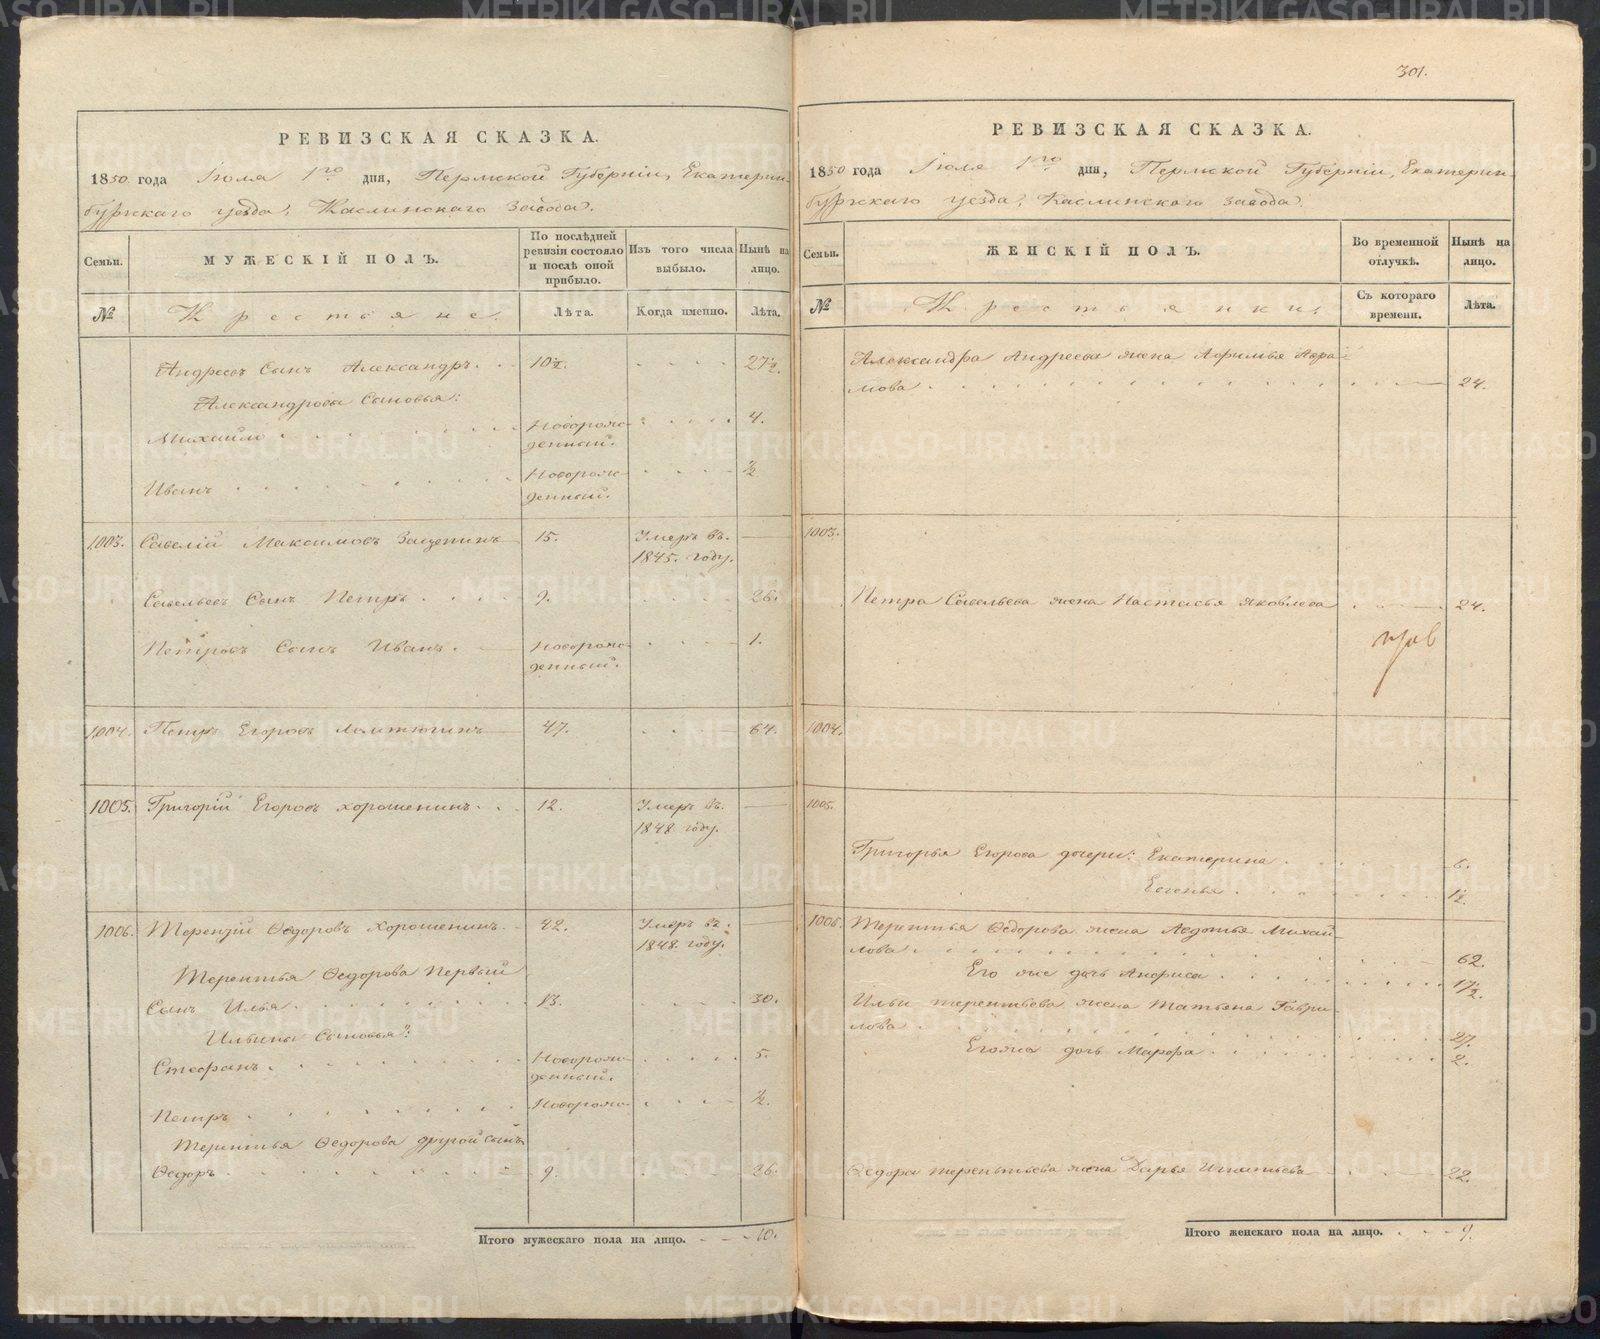 РЕВИЗСКАЯ СКАЗКА.
1850 года Июля 1го дня, Пермской Губерніи, Екатерин-
бургскаго уезда, Каслинскаго завода.
Семьи.
МУЖЕСКІЙ ПОЛЪ.
По послѣдней ревизіи состояло и послѣ оной прибыло.
Изъ того числа выбыло.
Нынѣ на лицо.
№
Крестьяне.
Лѣта.
Когда именно.
Лѣта.
Андреевъ Сынъ Александръ. 10½. 27½.
Александровы Сыновья:
Михайло Новорож- 4.
денный.
Иванъ Новорож- ½
денный.
1003. Савелій Максимовъ Зацепинъ 15. Умеръ въ
1845. году.
Савельевъ Сынъ Петръ 9. 26.
Петровъ Сынъ Иванъ. Новорож- 1.
денный.
1004. Петръ Егоровъ 47. 64.
1005. Григорій Егоровъ Хорошенинъ. 12. Умеръ въ
1848 году.
1006. Терентій Ѳедоровъ Хорошенинъ. 42. Умеръ въ
1848. году.
Терентья Ѳедорова Первый
Сынъ Илья 13. 30.
Ильины Сыновья:
Стефанъ. Новорож- 5.
денный.
Петръ Новорож- ½.
Терентья Ѳедорова другой сынъ
Ѳедоръ 9. 26.
Итого мужескаго пола на лицо. 10.
301.
РЕВИЗСКАЯ СКАЗКА.
1850 года Июля 1го дня, Пермской Губерніи, Екатерин-
бургскаго уезда, Каслинскаго завода.
Семьи.
ЖЕНСКІЙ ПОЛЪ.
Во временной отлучкѣ.
Нынѣ на лицо.
№
Крестьянки.
Съ котораго времени.
Лѣта.
Александра Андреева жена Афимья Авра-
мова 24.
1003.
Петра Савельева жена Настасья Яковлева 24.
1004.
1005.
Григорья Егорова дочери: Екатерина 6.
Евгенья 1½.
1006. Терентья Ѳедорова жена Авдотья Михай-
лова 62.
Его же дочь Анфиса 17½.
Ильи Терентьева жена Татьяна Гаври-
лова 27.
Егожа дочь Марфа 2.
Ѳедора Терентьева жена Дарья Игнатьева 22.
Итого женскаго пола на лицо. 9.
METRIKI.GASO-URAL.RU